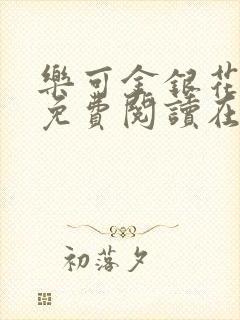 樂可金銀花
免費閱讀在
初落夕